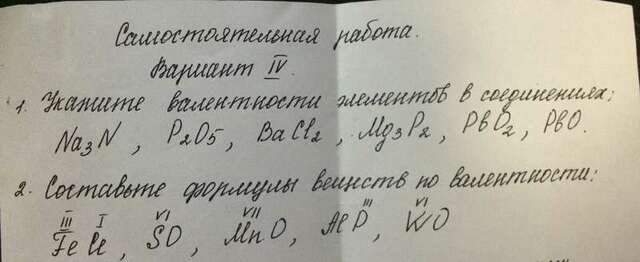 Самостоятельная работа.
Вариант IV.
1. Укажите валентности элементов в соединениях:
Na3N, P2O5, BaCl2, Mg3P2, PbO2, PbO.
2. Составьте формулы веществ по валентности:
III I VI VII III VI
FeCl, SO, MnO, AlP, WO